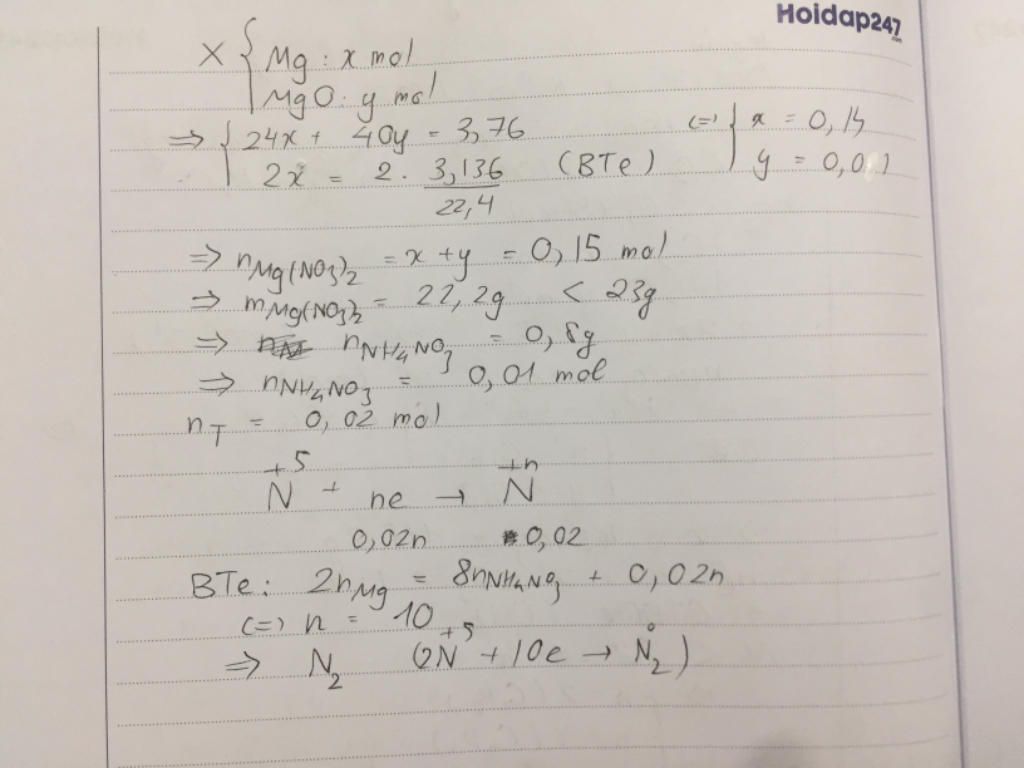 Hoidap247
X { Mg : x mol
MgO : y mol
=> { 24x + 40y = 3,76 (=) { x = 0,14
2x = 2 . 3,136 / 22,4 (BTe) y = 0,01
=> nMg(NO3)2 = x + y = 0,15 mol
=> mMg(NO3)2 = 22,2g < 23g
=> nNH4NO3 = 0,8g
=> nNH4NO3 = 0,01 mol
nT = 0,02 mol
+5 +n
N + ne → N
0,02n 0,02
BTe: 2nMg = 8nNH4NO3 + 0,02n
(=) n = 10
=> N2 (2N+5 + 10e → N2 0)